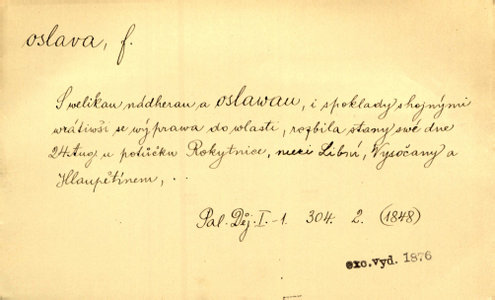 oslava, f.
S welikau nádherau a oslawau, i s poklady s hojnými
wrátiwši se wýprawa do wlasti, rozbila stany swé dne
24 Aug u potůčku Rokytnice, mezi Libní, Vysočany a
Hlaupětínem, ..
Pal. Děj. I.-1. 304. 2. (1848)
exc. vyd. 1876